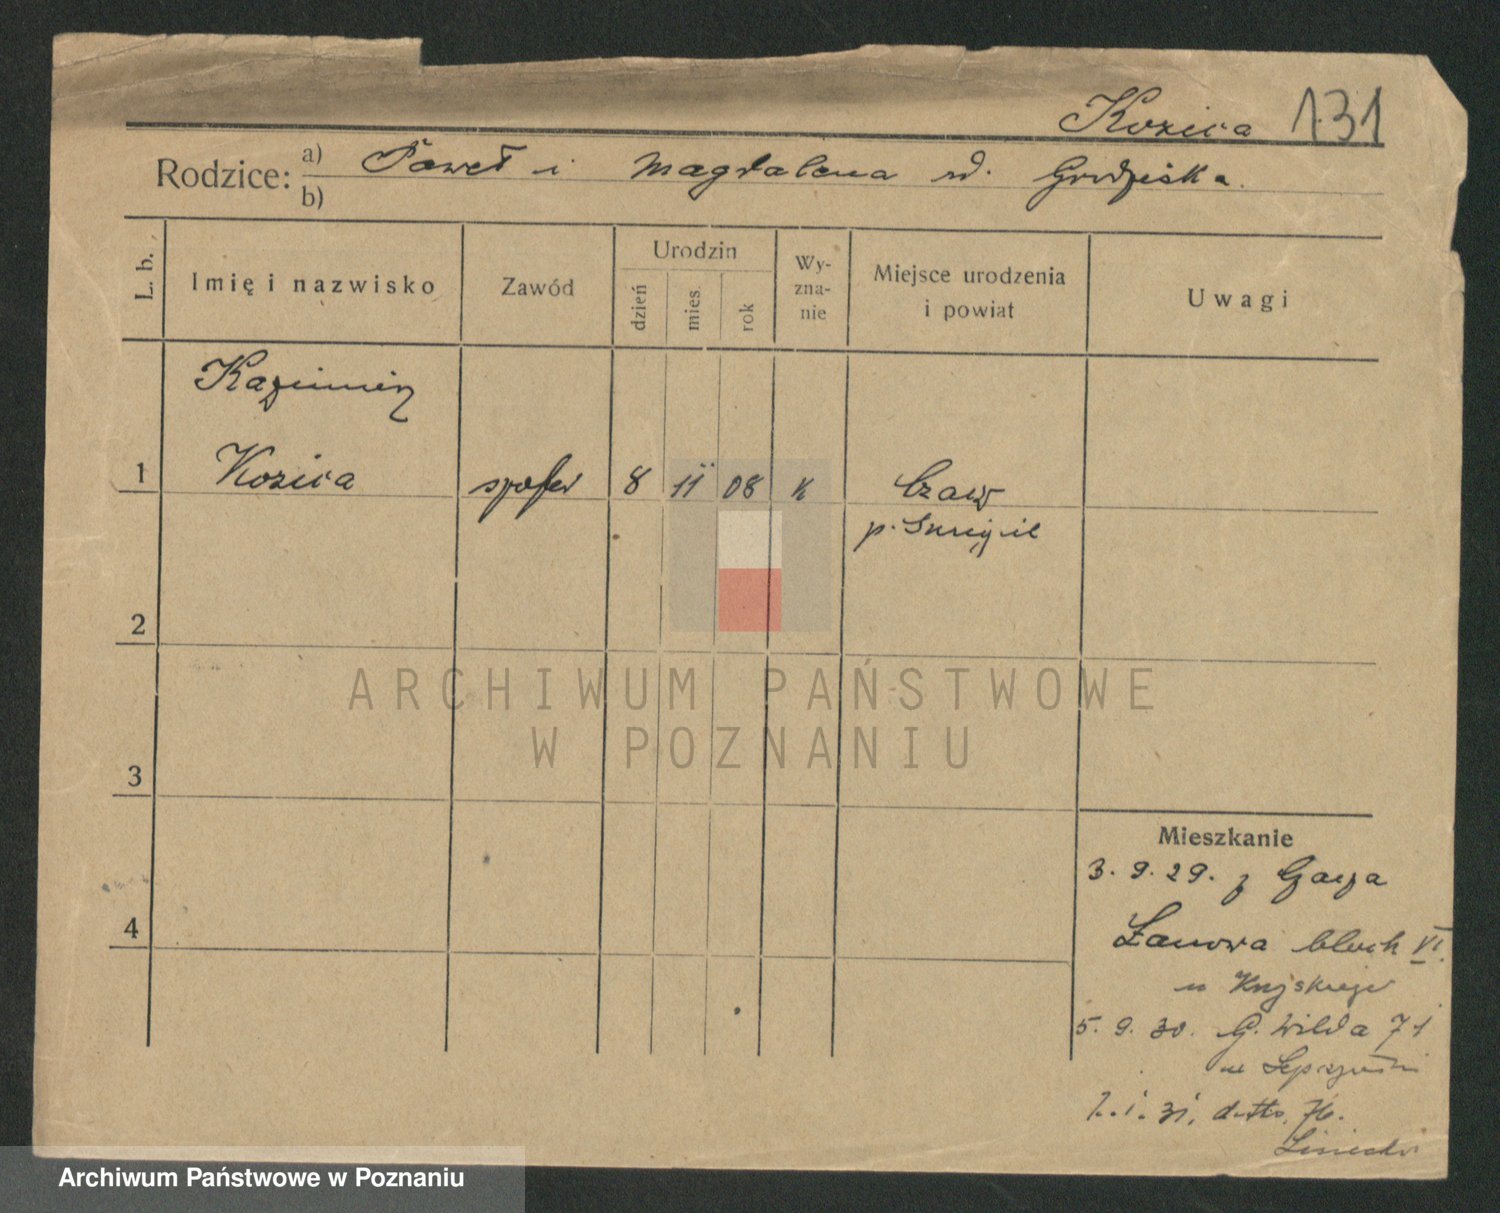 Kozica 131
Rodzice: a) Paweł i Magdalena rd. Grodziska.
b)
L. b.
Imię i nazwisko
Zawód
Urodzin
dzień
mies.
rok
Wy-
zna-
nie
Miejsce urodzenia
i powiat
Uwagi
Kazimierz
1 Kozica szofer 8 11 08 K Czacz
p. Śmigiel
2
3
4
Mieszkanie
3. 9. 29. z Gacza
Łanowa block VI.
u
5. 9. 30. G. Wilda 71
u
1. 1. 31. dtto. 76.
ARCHIWUM PAŃSTWOWE
W POZNANIU
Archiwum Państwowe w Poznaniu